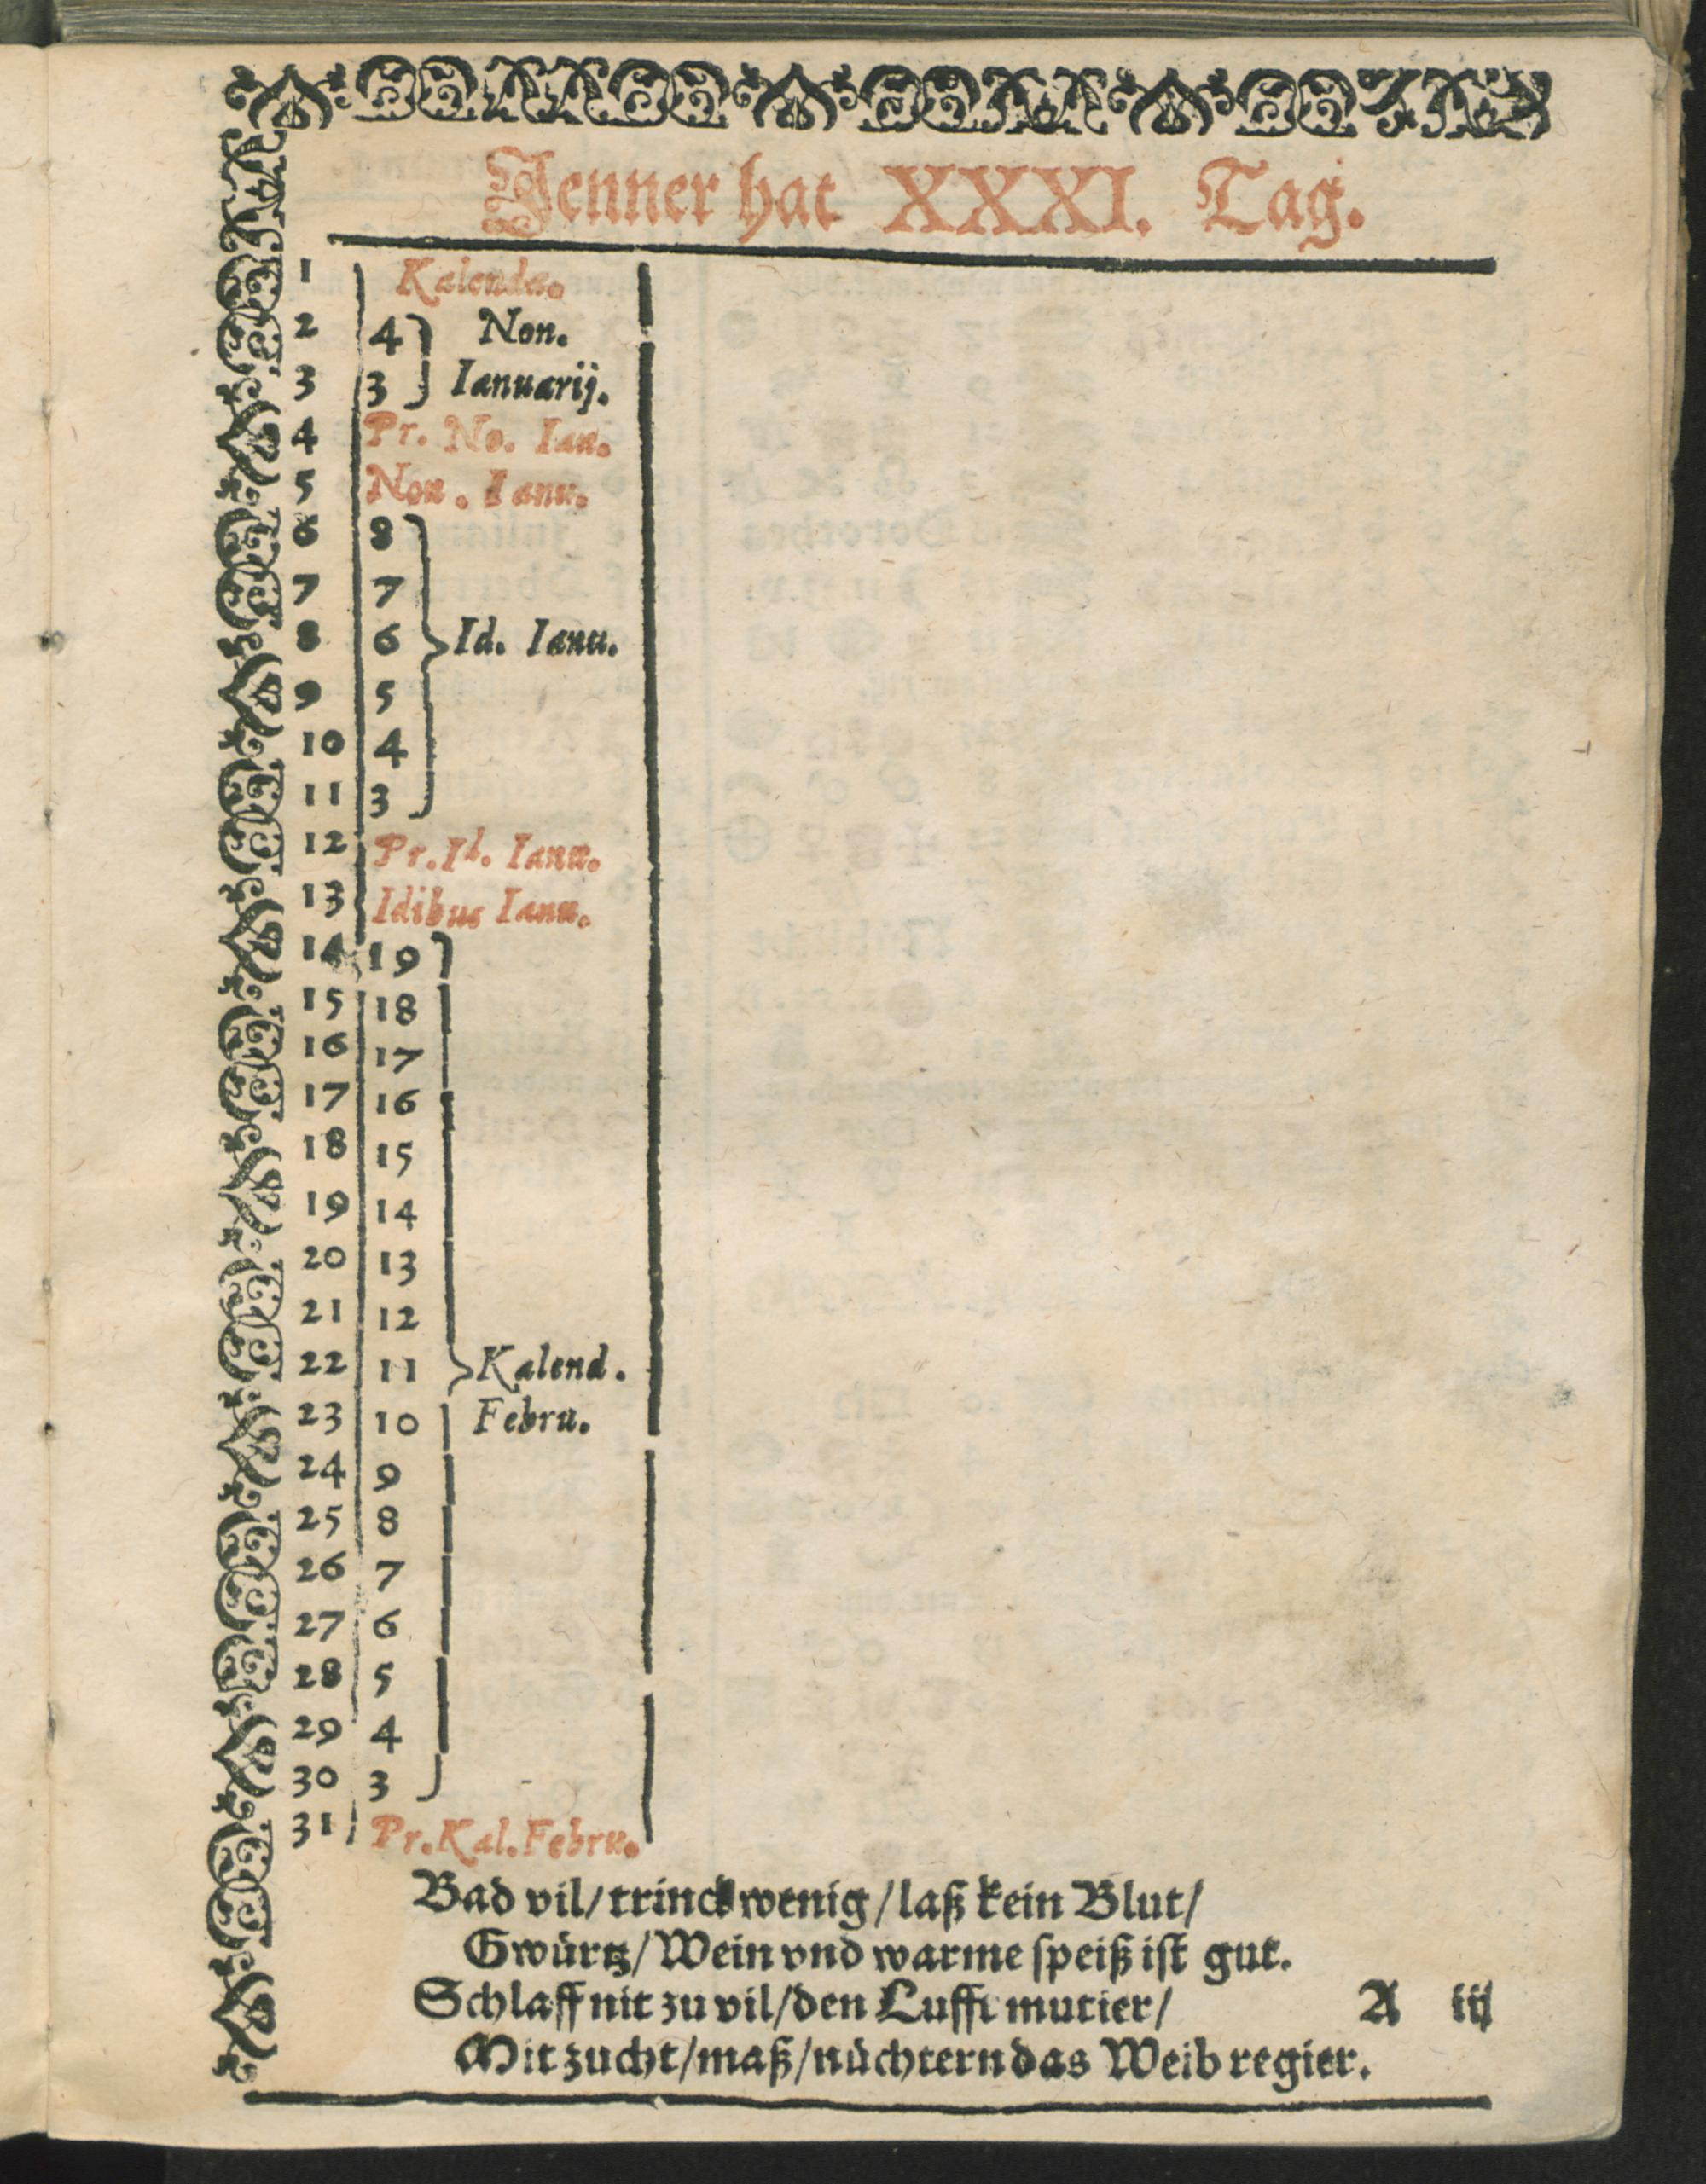 Jenner hat XXXI. Tag.
1 Kalendæ.
2 4 Non.
3 3 Ianuarij.
4 Pr. No. Ian.
5 Non. Ianu.
6 8
7 7
8 6 Id. Ianu.
9 5
10 4
11 3
12 Pr. Id. Ianu.
13 Idibus Ianu.
14 19
15 18
16 17
17 16
18 15
19 14
20 13
21 12
22 11 Kalend.
23 10 Febru.
24 9
25 8
26 7
27 6
28 5
29 4
30 3
31 Pr. Kal. Febru.
Bad vil/ trinck wenig/ laß kein Blut/
Gwürtz/ Wein vnd warme speiß ist gut.
Schlaff nit zu vil/ den Lufft mutier/
A iij
Mit zucht/ maß/ nüchtern das Weib regier.